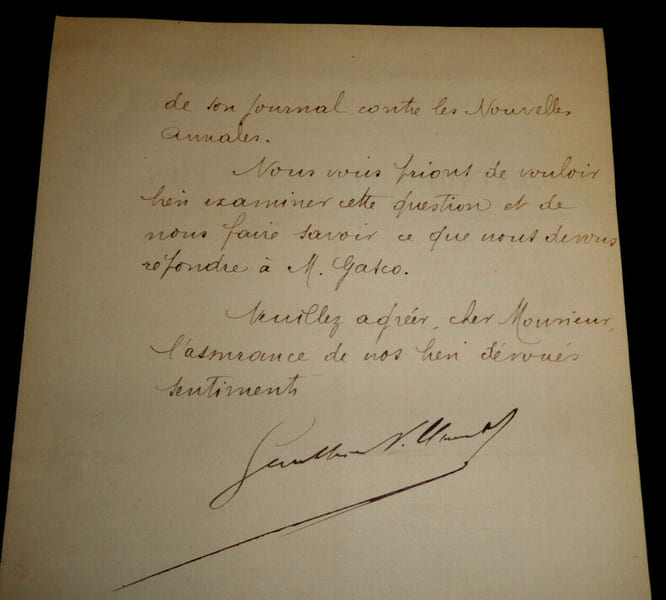 de son journal contre les Nouvelles
Annales.
Nous vous prions de vouloir
bien examiner cette question et de
nous faire savoir ce que nous devons
répondre à M. Gasco.
Veuillez agréer, cher Monsieur,
l'assurance de nos bien dévoués
sentiments
Gauthier Villars